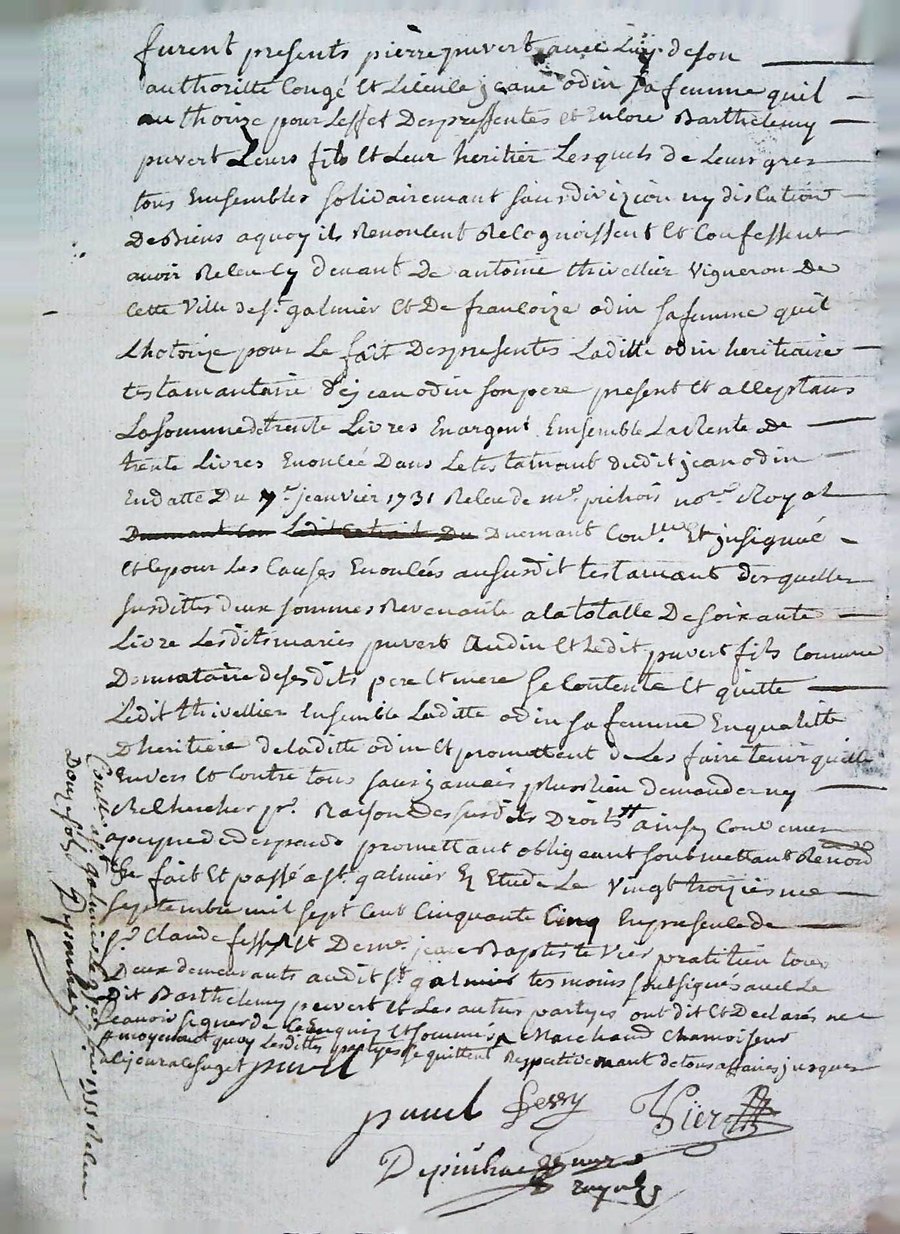 furent presents pierre puvert avec Luy de son
authoritte Congé et Licence jeane odin sa femme quil
authorize pour Leffet Des pressentes et Encore Barthelemy
puvert Leurs fils et Leur heritier Lesquels de Leurs gres
tous Ensembles solidairemant sans divizion ny discution
De Biens a quoy ils Renoncent Recognoissent et Confessent
avoir Receu Cy devant De antoine thivellier Vigneron De
Cette Ville de st. galmier et De francoize odin sa femme quil
Lhotorize pour Le fait Des presentes Laditte odin heritiaire
testamantaire de jean odin son pere present et acceptans
La somme de trente Livres En argent Ensemble La Rente de
trente Livres Enoncée Dans Le testamant dudit jean odin
En datte Du 7e. janvier 1731 Receu de me. not.re Royal
Duemant Con Ledit Du Duemant Cont.llé Et jnsignué
et Ce pour Les Causes Enoncées au susdit testamant desquelles
susdittes deux sommes Revenante a la totalle De soixante
Livre Lesdits mariés puvert Audin et Ledit puvert fils Comme
Donnataire de sesdits pere et mere se Contente et quitte
Ledit thivellier Ensemble Laditte odin sa femme En qualitte
Dheritiere de laditte odin et promettent de Les faire tenir quitte
Envers et Contre tous sans jamais plus Rien demander ny
Rechercher pr. Raison Des susdits Droits # ainsy Convenus
a peyne de despands promettant obligeant soubmettant Renond
fait et passé a st. galmier En Etude Le Vingt troyziesme
septembre mil sept Cent Cinquante Cinq En presence de
sr. Claude fessy et De me. jean Baptiste Vier pratitien tous
Deux demeurants audit st. galmier tesmoins soubsignés avec Le
dit Barthelemy puvert et Les autres partyes ont dit et Declarés ne
scavoir signer de Ce Enquis et sommés Marchand Chamoiseur
# moyenant quoy Lesdittes partyes se quittent Respectivemant de tous affaires jusques
a ce jour puvert
puvert fessy Vier
Royal
Con.llé a st. galmier Le 1755 Receu
Douze sols